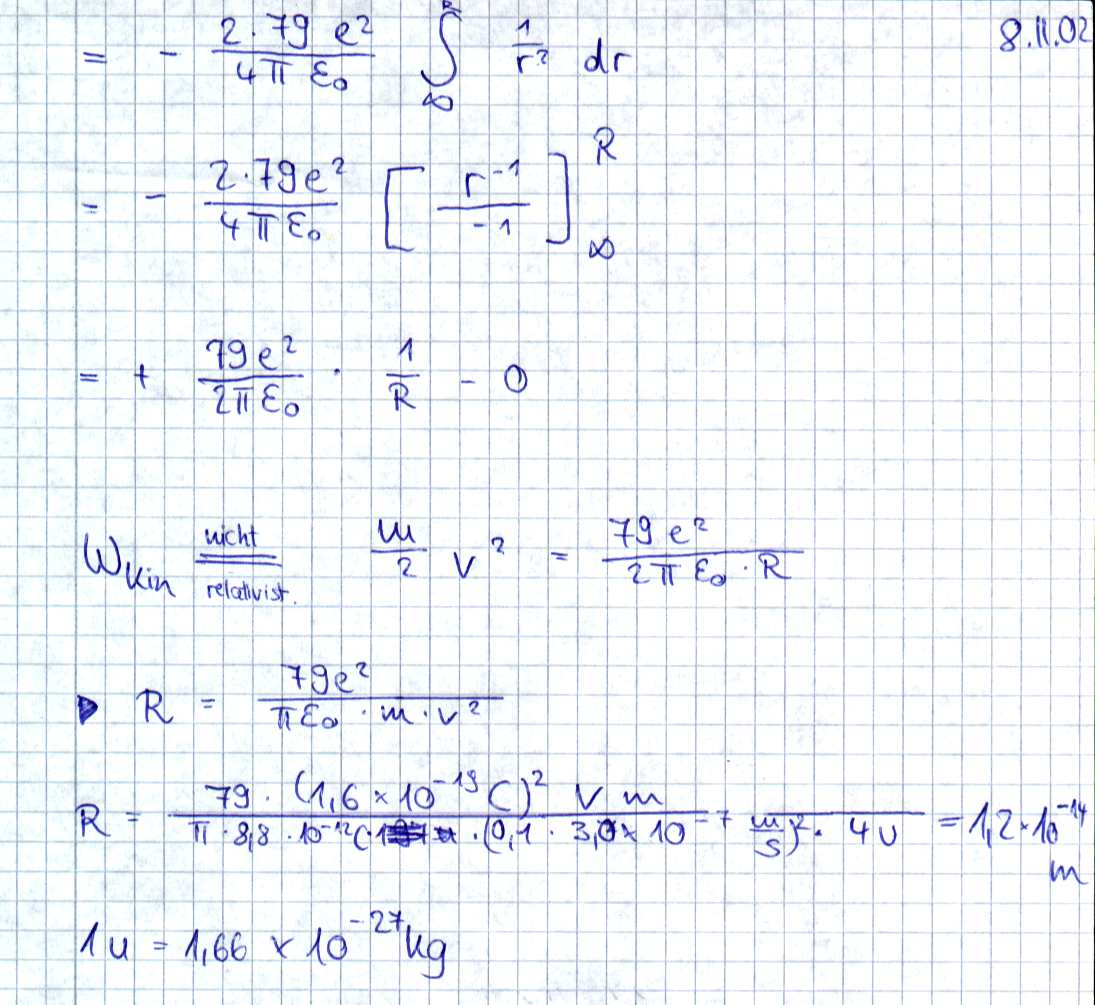 8.11.02
= - 2·79 e² / 4π ε₀ ∫_∞^R 1/r² dr
= - 2·79e² / 4π ε₀ [ r⁻¹ / -1 ]_∞^R
= + 79e² / 2π ε₀ · 1/R - 0
W_kin nicht relativist. = m/2 v² = 79 e² / 2π ε₀ · R
▶ R = 79e² / πε₀ · m · v²
R = 79 · (1,6 × 10⁻¹⁹ C)² V m / π · 8,8 · 10⁻¹² C · (0,1 · 3,0 × 10 m/s)² · 4u = 1,2 × 10⁻¹⁴ m
1u = 1,66 × 10⁻²⁷ kg